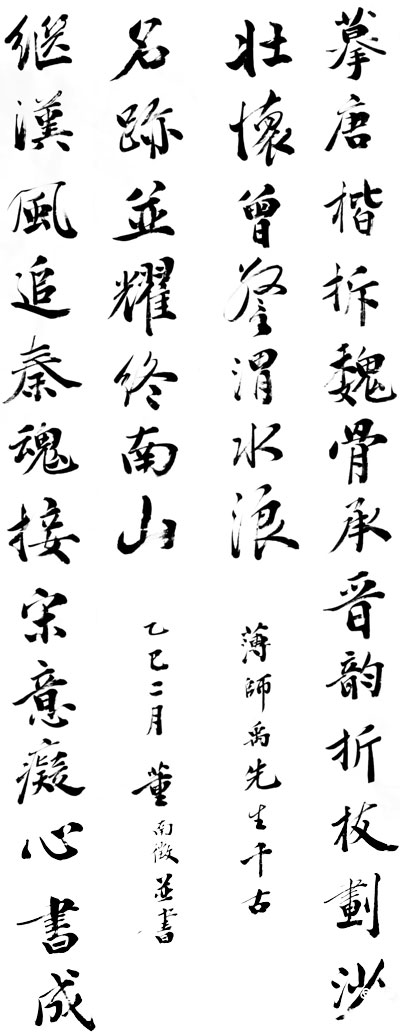 摹唐楷拆魏骨承晋韵折枝劃沙
壯懷曾登渭水浪
薄師禹先生千古
継漢風追秦魂接宋意癡心書成
名跡並耀終南山
乙巳二月 董南徵並書